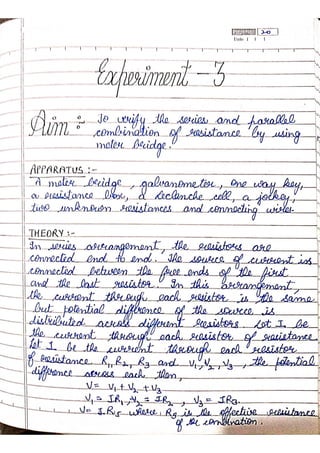 Page No. 20
Date
Experiment - 3
Aim :- To verify the series and parallel
combination of resistance by using
meter bridge.
APPARATUS :-
A meter bridge, galvanometer, one way key,
a resistance box, a Leclanche cell, a jockey,
two unknown resistances and connecting wires.
THEORY :-
In series arrangement, the resistors are
connected end to end. The source of current is
connected between the free ends of the first
and the last resistor. In this arrangement,
the current through each resistor is the same
but potential difference of the source is
distributed across different resistors. Let I be
the current through each resistor of resistance
Let I be the current through each resistor
of resistance R1, R2, R3 and V1, V2, V3, the potential
difference across each then,
V = V1 + V2 + V3
V1 = IR1, V2 = IR2, V3 = IR3.
V = I.Rs where, Rs is the effective resistance
of the combination.